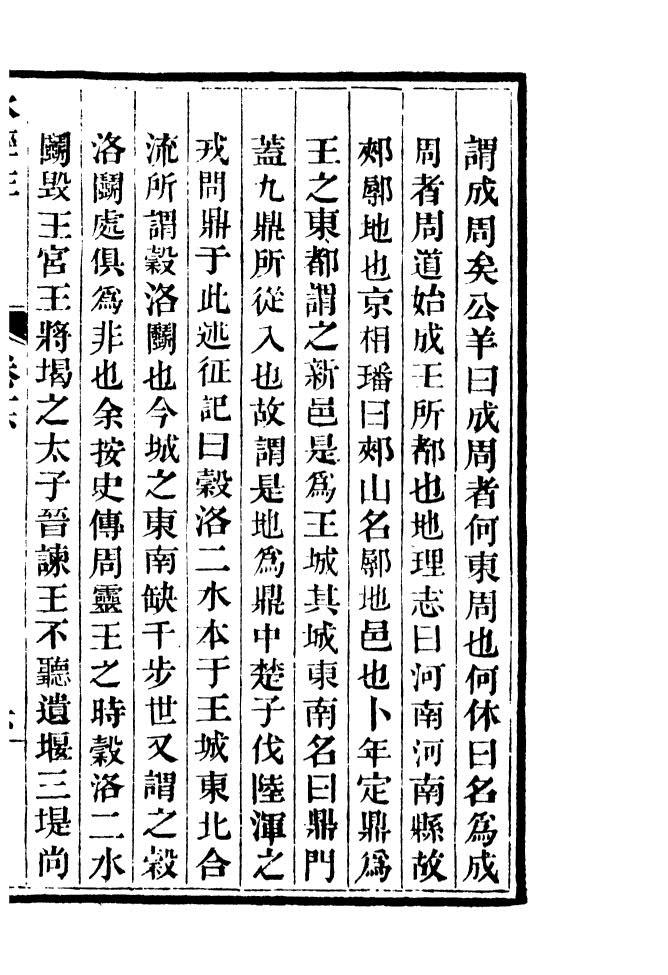 謂成周矣公羊曰成周者何東周也何休曰名為成
周者周道始成王所都也地理志曰河南河南縣故
郟鄏地也京相璠曰郟山名鄏地邑也卜年定鼎為
王之東都謂之新邑是為王城其城東南名曰鼎門
蓋九鼎所從入也故謂是地為鼎中楚子伐陸渾之
戎問鼎于此述征記曰穀洛二水本于王城東北合
流所謂穀洛鬭也今城之東南缺千步世又謂之穀
洛鬭處俱為非也余按史傳周靈王之時穀洛二水
鬭毀王宮王將堨之太子晉諫王不聽遺堰三堤尚
水經注 卷十六